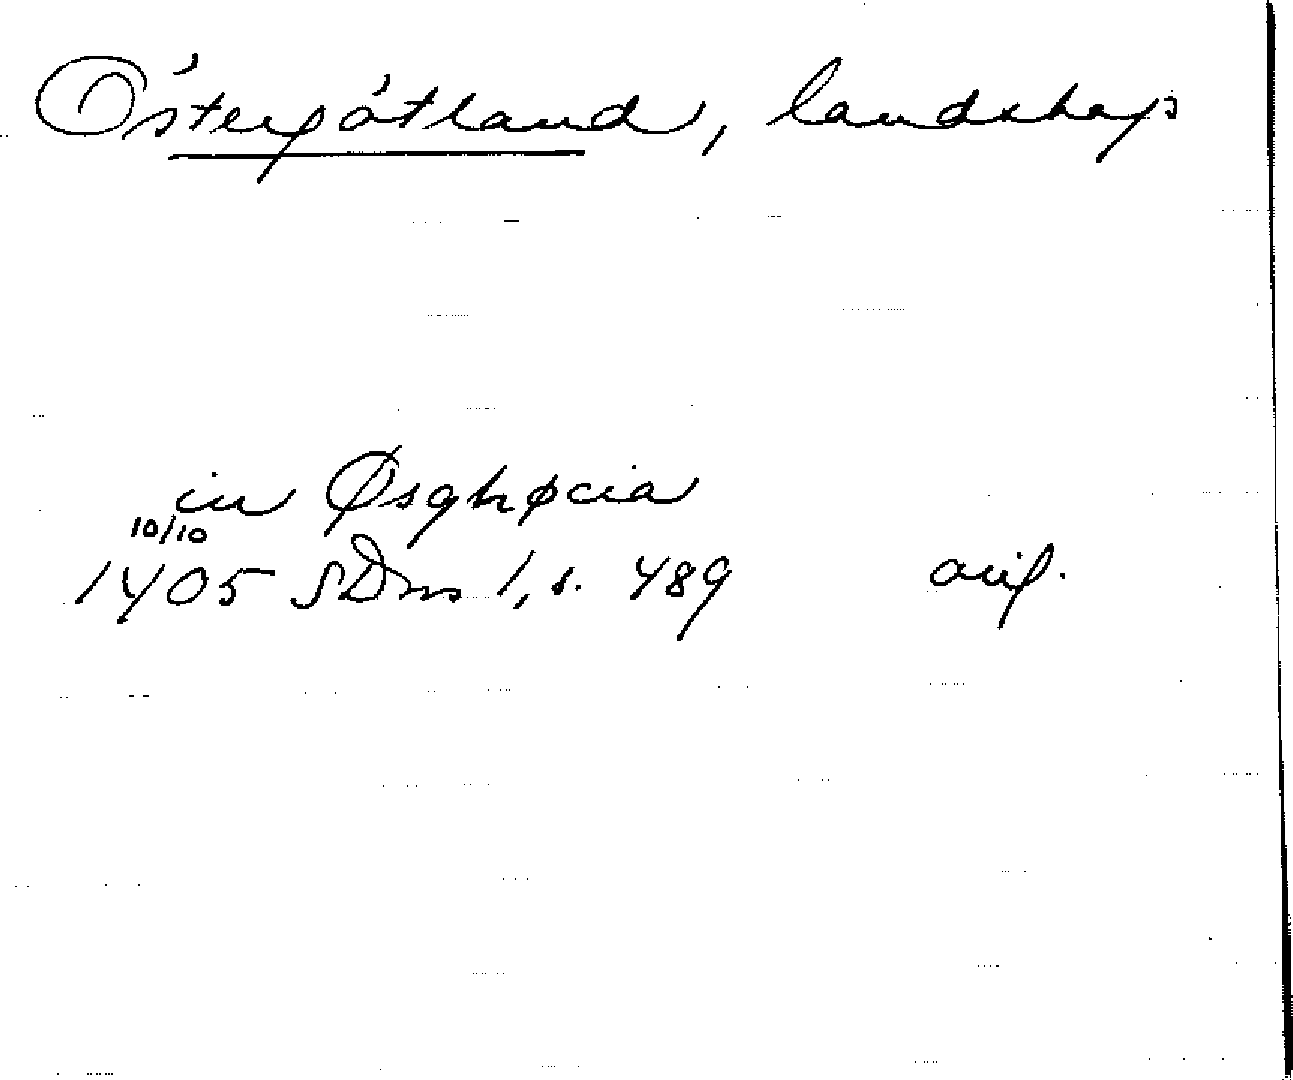 Östergötland, landskap
in Øsghøcia
10/10
1405 SDns 1, s. 489 orig.